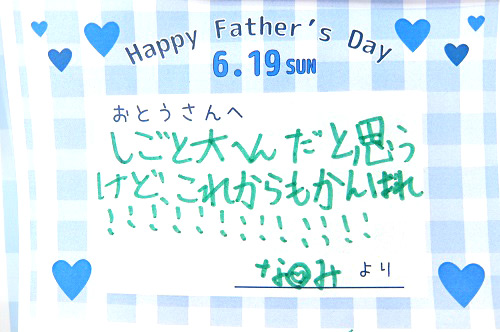 Happy Father's Day
6.19 SUN
おとうさんへ
しごと大へんだと思う
けど、これからもがんばれ
!!!!!!!!!!!!!
なおみ より